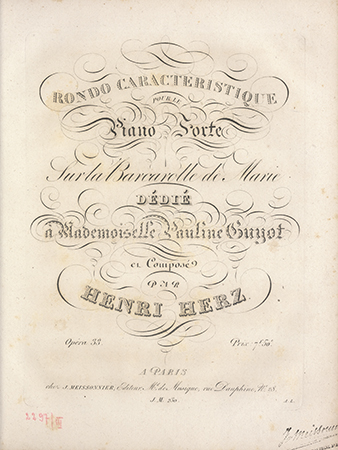 RONDO CARACTERISTIQUE
POUR LE
Piano Forte
Sur la Barcarolle de Marie
DÉDIÉ
à Mademoiselle Pauline Guyot
et Composé
PAR
HENRI HERZ
Opéra 33. Prix 7f 50c
A PARIS
chez J. MEISSONNIER, Editeur, Md. de Musique, rue Dauphine, No. 18.
J.M. 250.
2297
J. Meissonnier